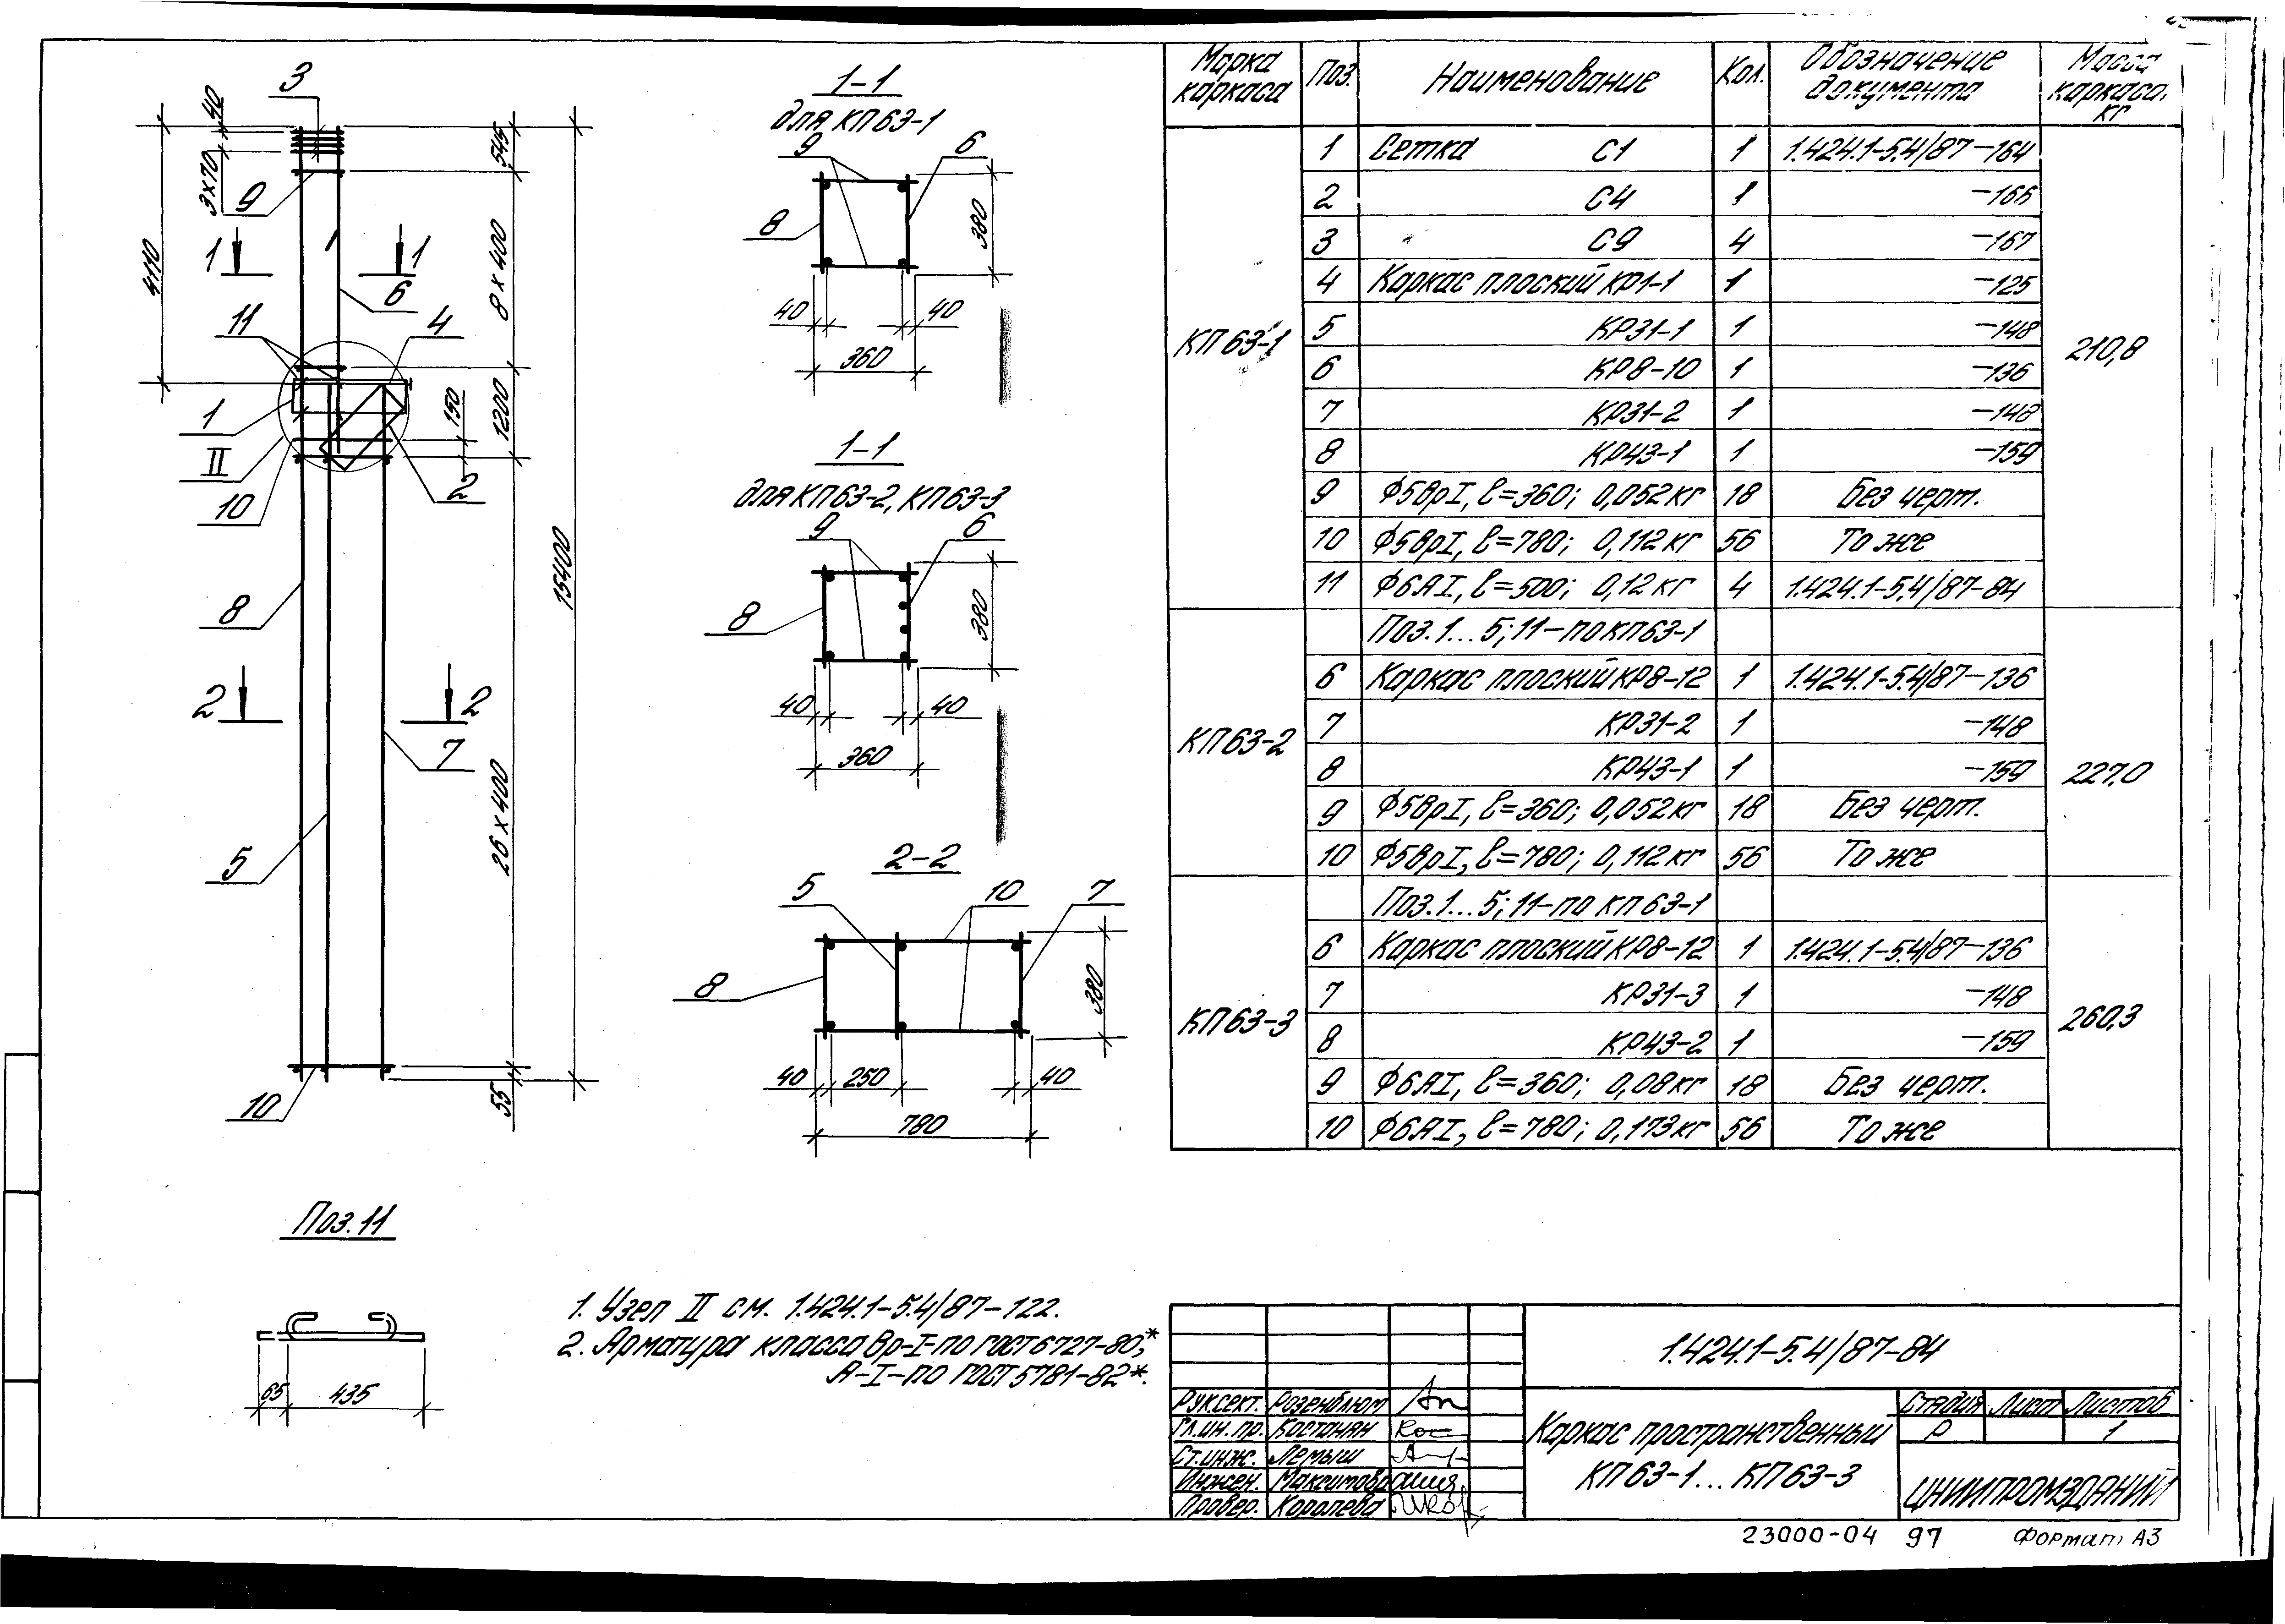 3
40
3×70
9
4110
545
8×400
1 1
6
11
4
1
150
1200
II
10
2
15400
8
2 2
7
26×400
5
10
55
1-1
для КП63-1
9 6
8
380
40 40
360
1-1
для КП63-2, КП63-3
9 6
8
380
40 40
360
2-2
5 10 7
8
380
40 250 40
780
Поз. 11
65 435
1. Узел II см. 1.424.1-5.4/87-122.
2. Арматура класса Вр-I-по ГОСТ 6727-80*,
А-I-по ГОСТ 5781-82*.
Марка каркаса Поз. Наименование Кол. Обозначение документа Масса каркаса, кг
КП63-1 210,8
1 Сетка С1 1 1.424.1-5.4/87-164
2 С4 1 -166
3 С9 4 -167
4 Каркас плоский КР1-1 1 -125
5 КР31-1 1 -148
6 КР8-10 1 -136
7 КР31-2 1 -148
8 КР43-1 1 -159
9 Ф5ВрI, ℓ=360; 0,052кг 18 Без черт.
10 Ф5ВрI, ℓ=780; 0,112кг 56 То же
11 Ф6АI, ℓ=500; 0,12кг 4 1.424.1-5.4/87-84
КП63-2 227,0
Поз. 1...5; 11-по КП63-1
6 Каркас плоский КР8-12 1 1.424.1-5.4/87-136
7 КР31-2 1 -148
8 КР43-1 1 -159
9 Ф5ВрI, ℓ=360; 0,052кг 18 Без черт.
10 Ф5ВрI, ℓ=780; 0,112кг 56 То же
КП63-3 260,3
Поз. 1...5; 11-по КП63-1
6 Каркас плоский КР8-12 1 1.424.1-5.4/87-136
7 КР31-3 1 -148
8 КР43-2 1 -159
9 Ф6АI, ℓ=360; 0,08кг 18 Без черт.
10 Ф6АI, ℓ=780; 0,173кг 56 То же
1.424.1-5.4/87-84
Рук.сект. Розенблюм
Гл.ин.пр. Костанян
Ст.инж. Лемыш
Инжен.
Провер. Королева
Каркас пространственный
КП63-1...КП63-3
Стадия Лист Листов
Р 1
ЦНИИПРОМЗДАНИЙ
23000-04 97 Формат А3